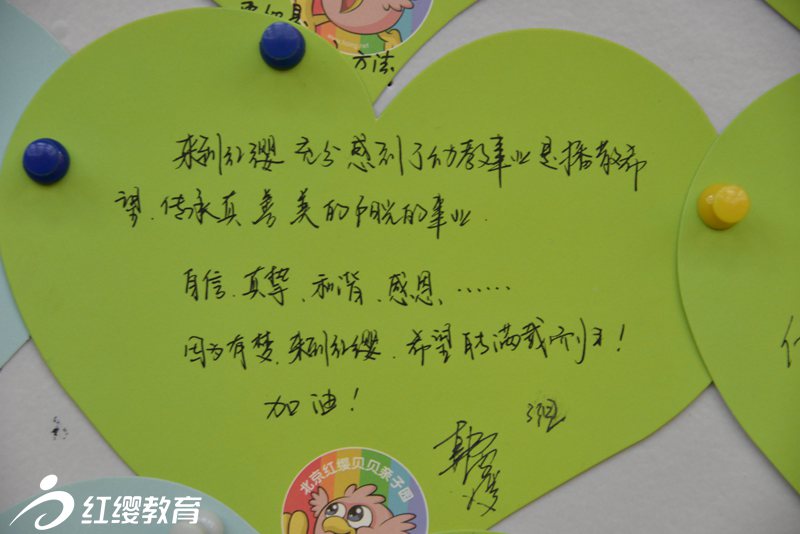 方法
来到红缨充分感到了幼教事业是播散希
望、传承真善美的阳光的事业.
自信、真挚、和谐、感恩、……
因为有梦,来到红缨、希望能满载而归!
加油!
3班
北京红缨贝贝亲子园
红缨教育